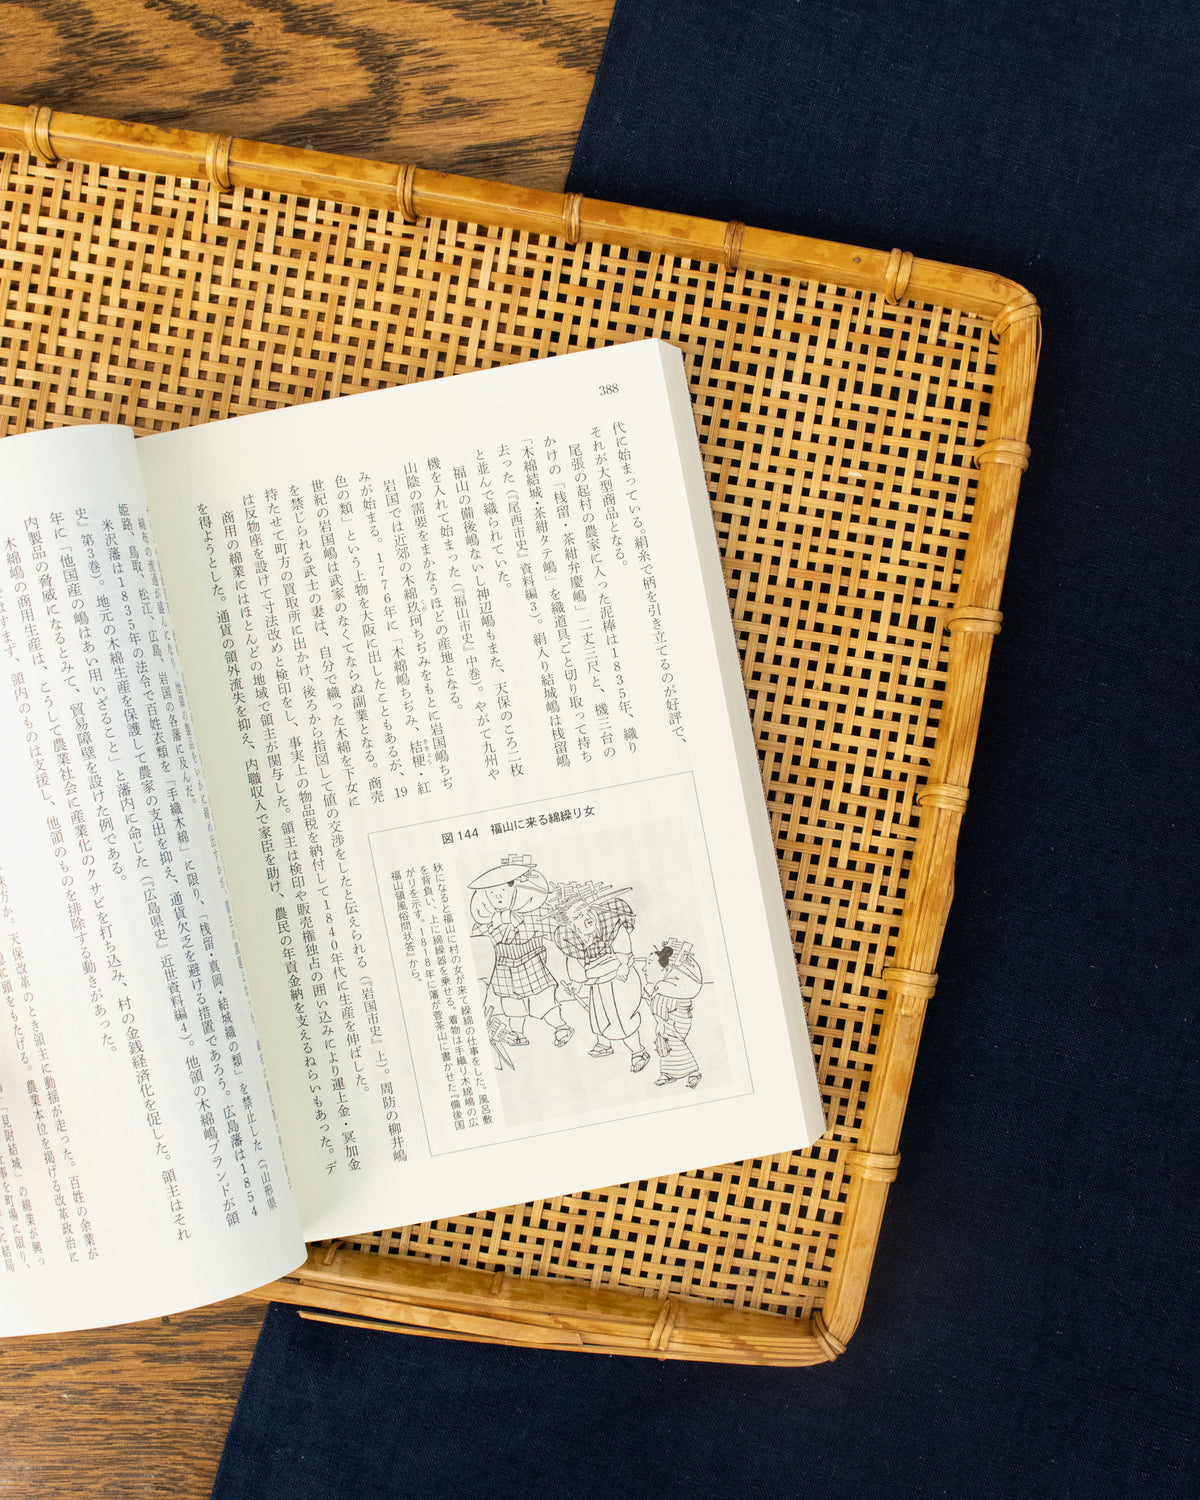 388
代に始まっている。絹糸で柄を引き立てるのが好評で、
それが大型商品となる。
尾張の起村の農家に入った泥棒は1835年、織り
かけの「桟留・茶紺弁慶嶋」二丈三尺と、機三台の
「木綿結城・茶紺タテ嶋」を織道具ごと切り取って持ち
去った(『尾西市史』資料編3)。絹入り結城嶋は桟留嶋
と並んで織られていた。
福山の備後嶋ないし神辺嶋もまた、天保のころ二枚
機を入れて始まった(『福山市史』中巻)。やがて九州や
山陰の需要をまかなうほどの産地となる。
岩国では近郊の木綿玖珂ちぢみをもとに岩国嶋ちぢ
みが始まる。1776年に「木綿嶋ちぢみ、桔梗・紅
色の類」という上物を大阪に出したこともあるが、19
世紀の岩国嶋は武家のなくてならぬ副業となる。商売
を禁じられる武士の妻は、自分で織った木綿を下女に
持たせて町方の買取所に出かけ、後ろから指図して値の交渉をしたと伝えられる(『岩国市史』上)。周防の柳井嶋
は反物座を設けて寸法改めと検印をし、事実上の物品税を納付して1840年代に生産を伸ばした。
商用の綿業にはほとんどの地域で領主が関与した。領主は検印や販売権独占の囲い込みにより運上金・冥加金
を得ようとした。通貨の領外流失を抑え、内職収入で家臣を助け、農民の年貢金納を支えるねらいもあった。デ
図144 福山に来る綿繰り女
秋になると福山に村の女が来て繰綿の仕事をした。風呂敷
を背負い、上に綿繰器を乗せる。着物は手織り木綿嶋の広
がりを示す。1818年に藩が菅茶山に書かせた『備後国
福山領風俗問状答』から。
姫路、鳥取、松江、広島、岩国の各藩に及んだ。
米沢藩は1835年の法令で百姓衣類を「手織木綿」に限り、「桟留・真岡・結城織の類」を禁止した(『山形県
史』第3巻)。地元の木綿生産を保護して農家の支出を抑え、通貨欠乏を避ける措置であろう。広島藩は1854
年に「他国産の嶋はあい用いざること」と藩内に命じた(『広島県史』近世資料編4)。他領の木綿嶋ブランドが領
内製品の脅威になるとみて、貿易障壁を設けた例である。
木綿嶋の商用生産は、こうして農業社会に産業化のクサビを打ち込み、村の金銭経済化を促した。領主はそれ
ではすまず、領内のものは支援し、他領のものを排除する動きがあった。
天保改革のとき領主に動揺が走った。百姓の余業が
に頭をもたげる。農業本位を掲げる改革政治に
「見附結城」の綿業が興っ
を町場に限り、
結局